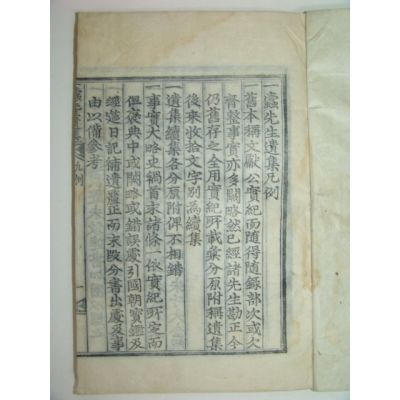 一蠹先生遺集凡例
一舊本稱文獻公實紀而隨得隨錄部次或欠
齊整事實亦多闕略然已經諸先生勘正今
仍舊存之全用實紀所載彙分原附稱遺集
後來收拾文字別為續集
遺集續集各分原附俾不相錯
一事實大略史禍首末諸條一依實紀所定而
俱褒典中或闕略或錯誤處引國朝寶鑑及
經筵日記補遺釐正而末段分書出處及事
由以備參考
凡例
一